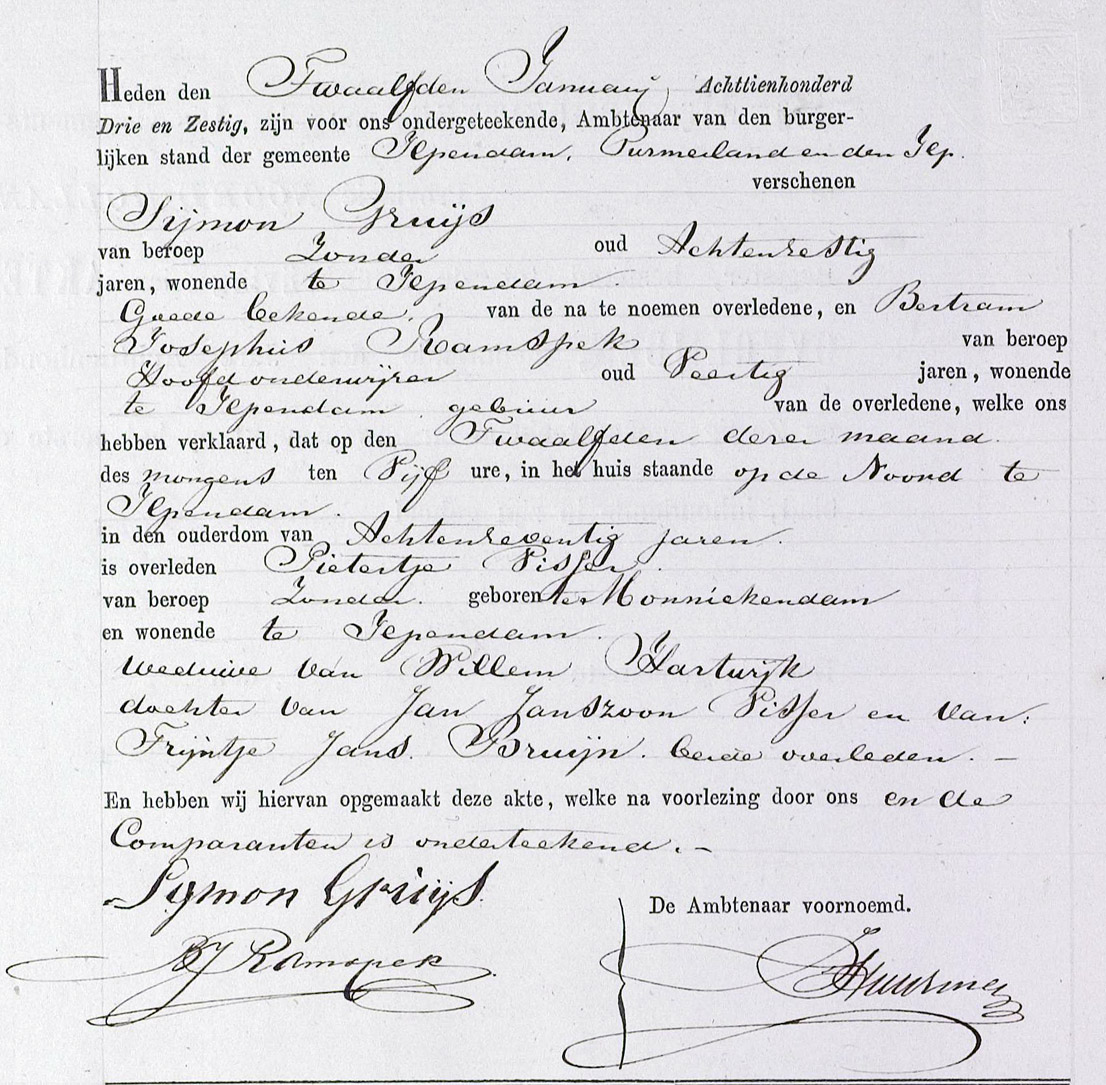 Heden den Twaalfden January Achttienhonderd
Drie en Zestig, zijn voor ons ondergeteekende, Ambtenaar van den burger-
lijken stand der gemeente Ilpendam, Purmerland en den Ilp.
verschenen
Sijmon Gruijs
van beroep Zonder oud Achtenzestig
jaren, wonende te Ilpendam
Goede bekende, van de na te noemen overledene, en Bertram
Josephus Ramspek van beroep
Hoofdonderwijzer oud Veertig jaren, wonende
te Ilpendam gebuur van de overledene, welke ons
hebben verklaard, dat op den Twaalfden dezer maand
des morgens ten Vijf ure, in het huis staande op de Noord te
Ilpendam.
in den ouderdom van Achtenzeventig jaren.
is overleden Pietertje Visser.
van beroep Zonder. geboren te Monnickendam
en wonende te Ilpendam.
weduwe van Willem Hartwijk
dochter van Jan Janszoon Visser en van:
Trijntje Jans. Bruijn. beide overleden. —
En hebben wij hiervan opgemaakt deze akte, welke na voorlezing door ons en de
Comparanten is onderteekend. —
Symon Gruijs.
De Ambtenaar voornoemd.
BJ Ramspek